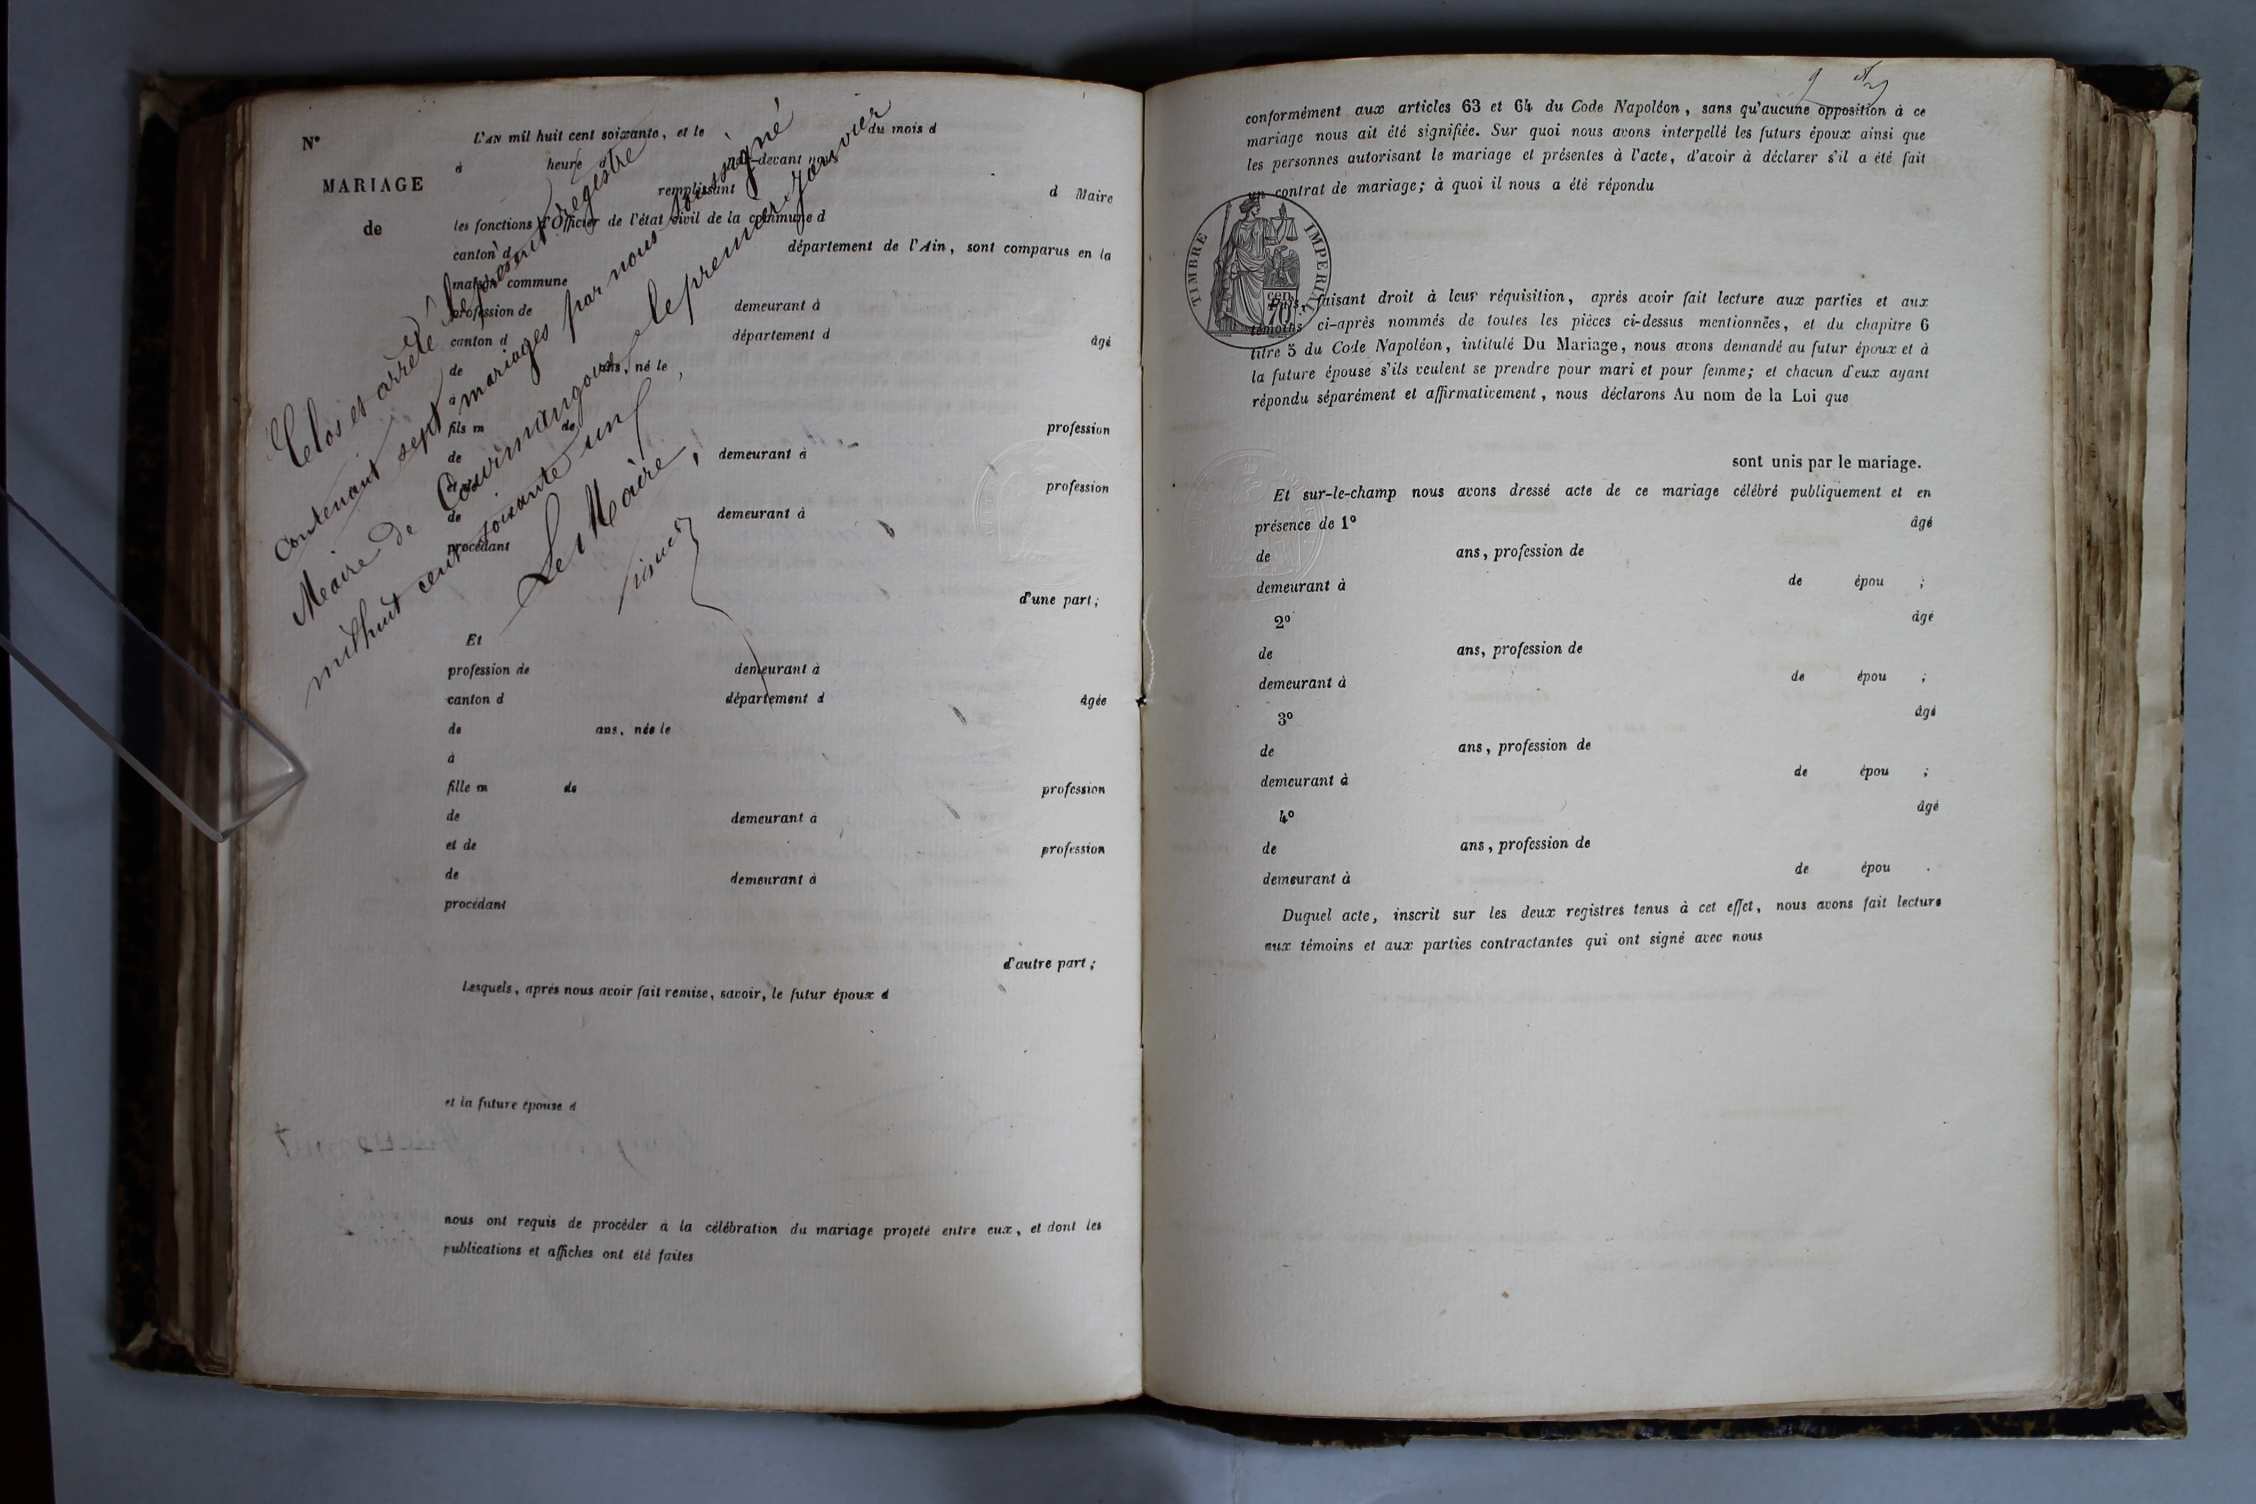 N°
MARIAGE
de
L'AN mil huit cent soixante, et le du mois d
à heure d par-devant nous
remplissant d Maire
les fonctions d'Officier de l'état civil de la commune d
canton d département de l'Ain, sont comparus en la
maison commune
profession de demeurant à
canton d département d âgé
de ans, né le
à
fils m de profession
de demeurant à
et de profession
de demeurant à
procédant
d'une part;
Et
profession de demeurant à
canton d département d âgée
de ans, née le
à
fille m de profession
de demeurant à
et de profession
de demeurant à
procédant
d'autre part;
Lesquels, après nous avoir fait remise, savoir, le futur époux d
et la future épouse d
nous ont requis de procéder à la célébration du mariage projeté entre eux, et dont les
publications et affiches ont été faites
Clos et arrêté le présent régestre
contenant sept mariages par nous soussigné
Maire de Courmangoux le premier janvier
mil huit cent soixante un
Le Maire,
conformément aux articles 63 et 64 du Code Napoléon, sans qu'aucune opposition à ce
mariage nous ait été signifiée. Sur quoi nous avons interpellé les futurs époux ainsi que
les personnes autorisant le mariage et présentes à l'acte, d'avoir à déclarer s'il a été fait
un contrat de mariage; à quoi il nous a été répondu
TIMBRE IMPERIAL
70 cen.
Puis, faisant droit à leur réquisition, après avoir fait lecture aux parties et aux
témoins ci-après nommés de toutes les pièces ci-dessus mentionnées, et du chapitre 6
titre 5 du Code Napoléon, intitulé Du Mariage, nous avons demandé au futur époux et à
la future épouse s'ils veulent se prendre pour mari et pour femme; et chacun d'eux ayant
répondu séparément et affirmativement, nous déclarons Au nom de la Loi que
sont unis par le mariage.
Et sur-le-champ nous avons dressé acte de ce mariage célébré publiquement et en
présence de 1° âgé
de ans, profession de
demeurant à de épou ;
2° âgé
de ans, profession de
demeurant à de épou ;
3° âgé
de ans, profession de
demeurant à de épou ;
4° âgé
de ans, profession de
demeurant à de épou .
Duquel acte, inscrit sur les deux registres tenus à cet effet, nous avons fait lecture
aux témoins et aux parties contractantes qui ont signé avec nous